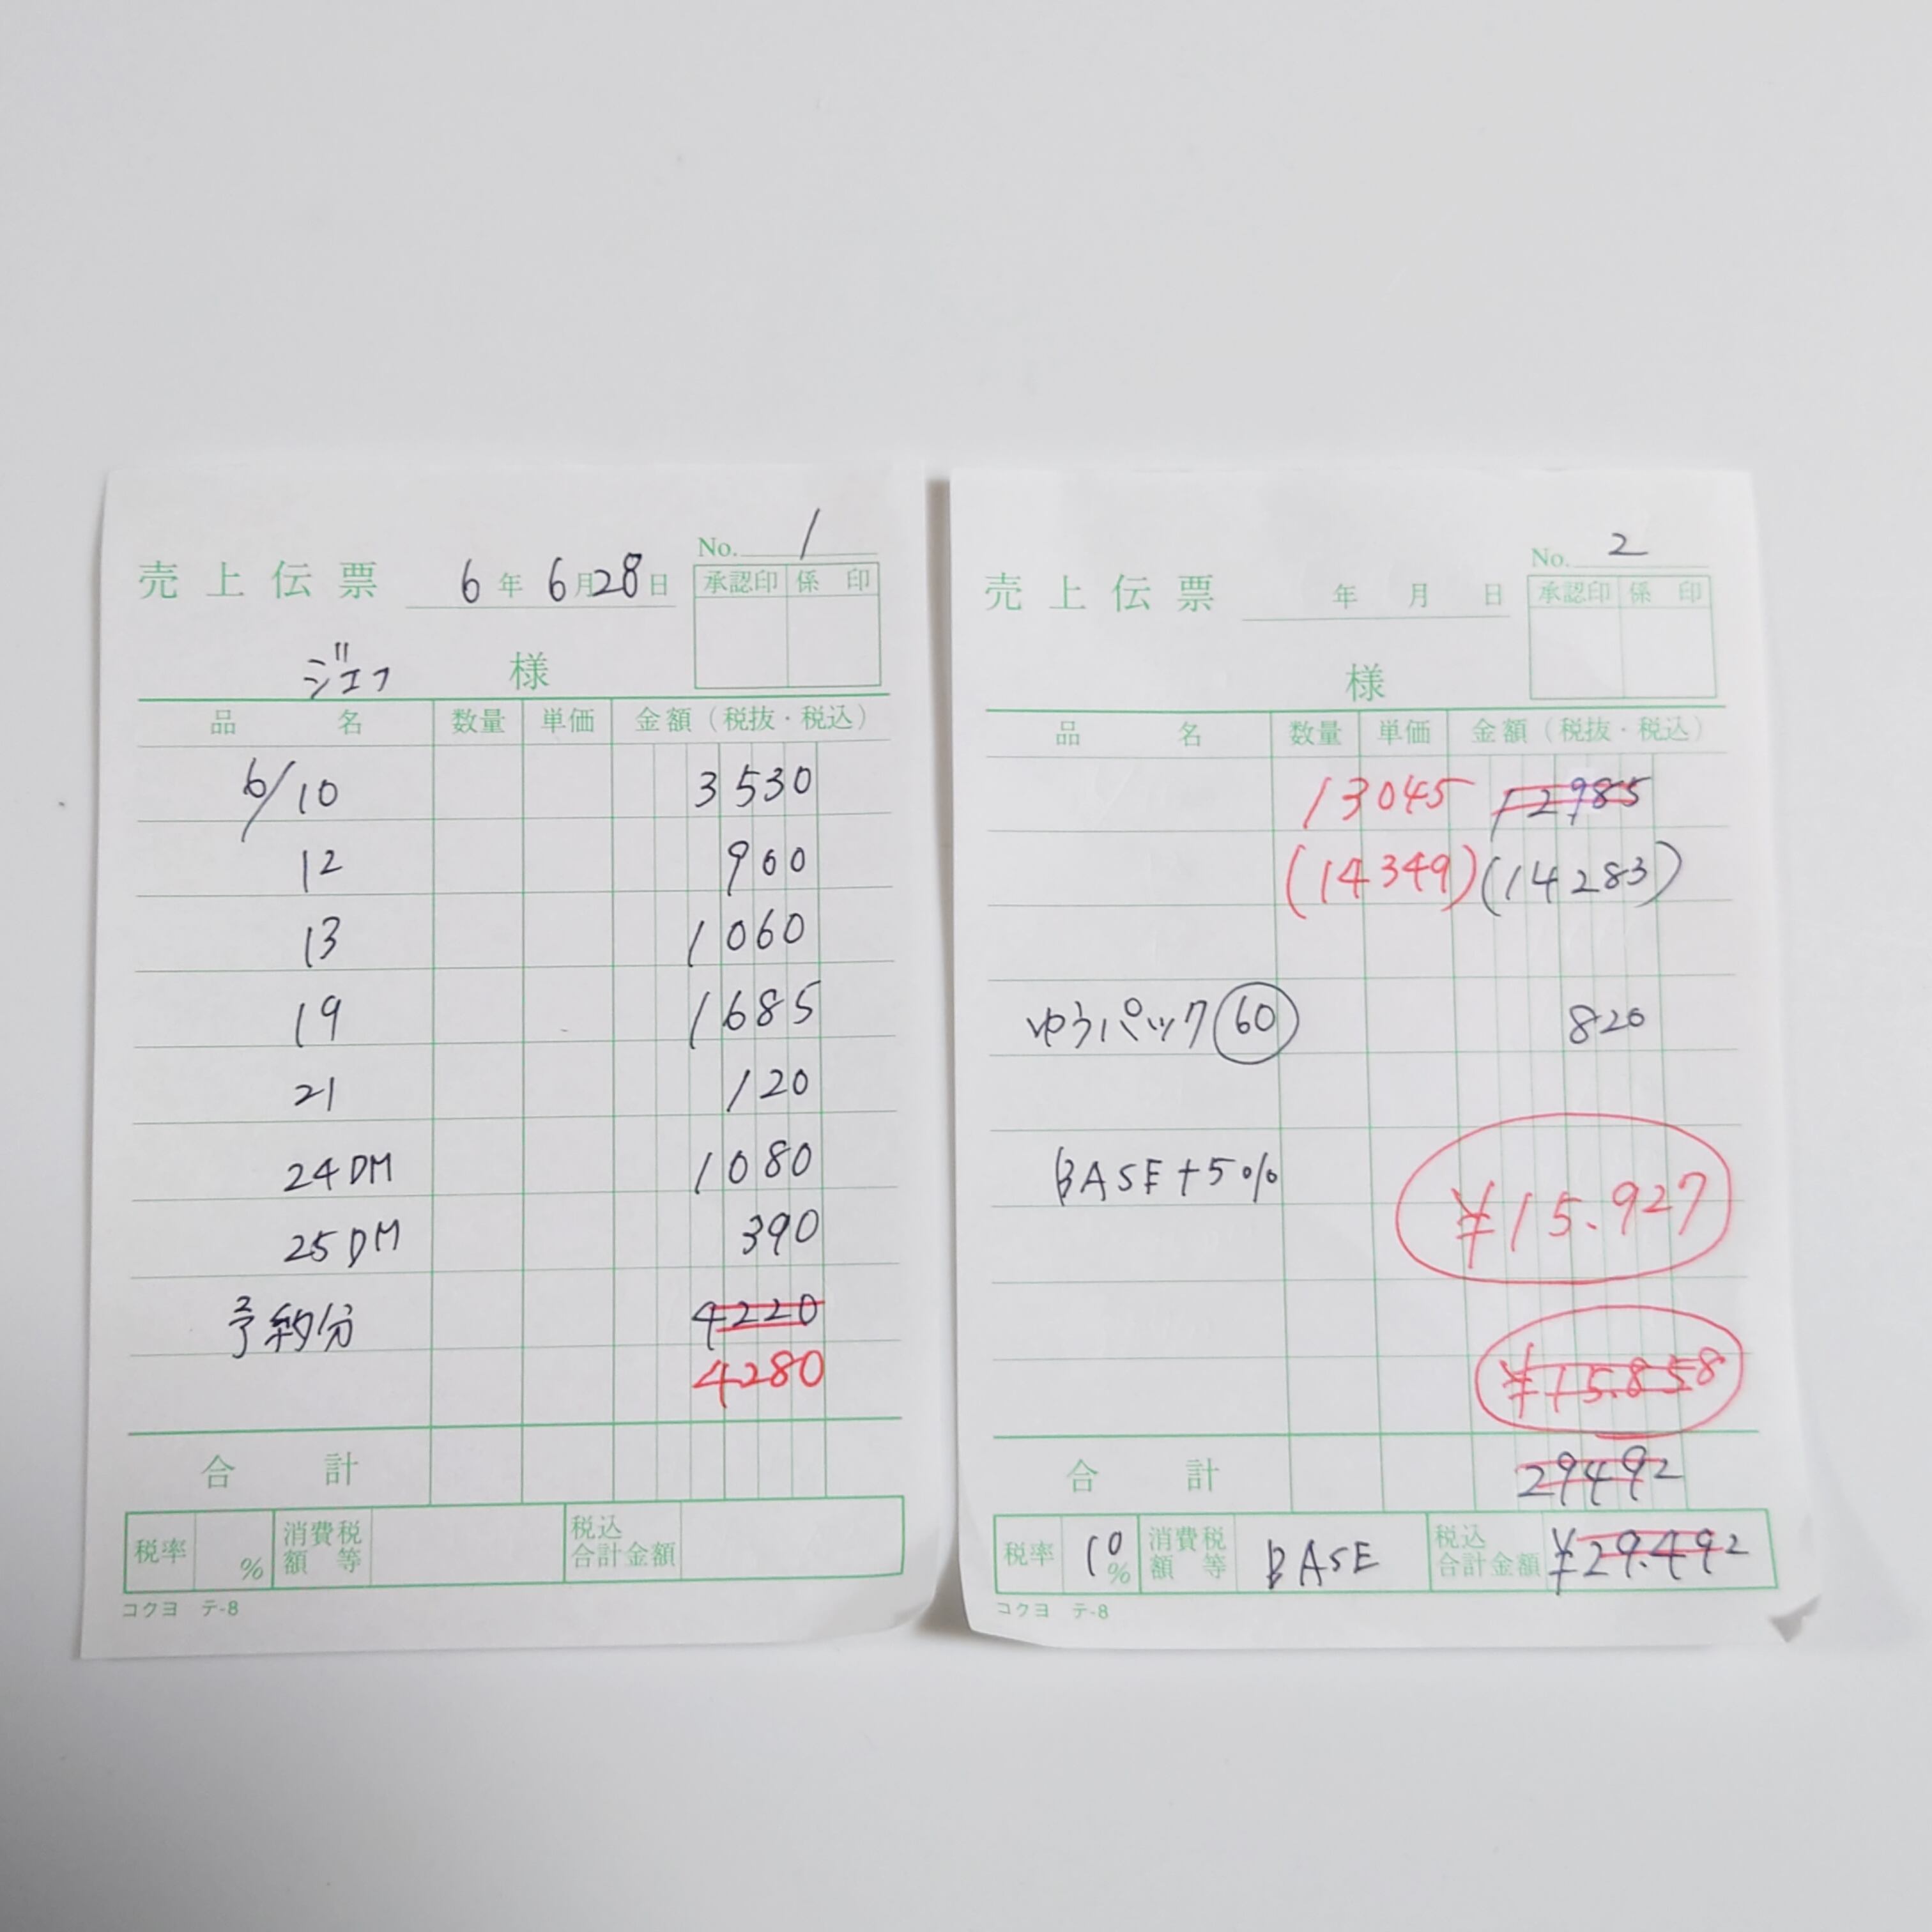 No. 1
売上伝票 6年 6月28日
承認印 係印
ジェフ 様
品名 数量 単価 金額(税抜・税込)
6/10 3530
12 900
13 1060
19 1685
21 120
24DM 1080
25DM 390
予約分 4220
4280
合計
税率 % 消費税額等 税込合計金額
コクヨ テ-8
No. 2
売上伝票 年 月 日
承認印 係印
様
品名 数量 単価 金額(税抜・税込)
13045 12985
(14349) (14283)
ゆうパック 60 820
BASE+5%
¥15.927
¥15.858
合計 29492
税率 10% 消費税額等 BASE 税込合計金額 ¥29.492
コクヨ テ-8